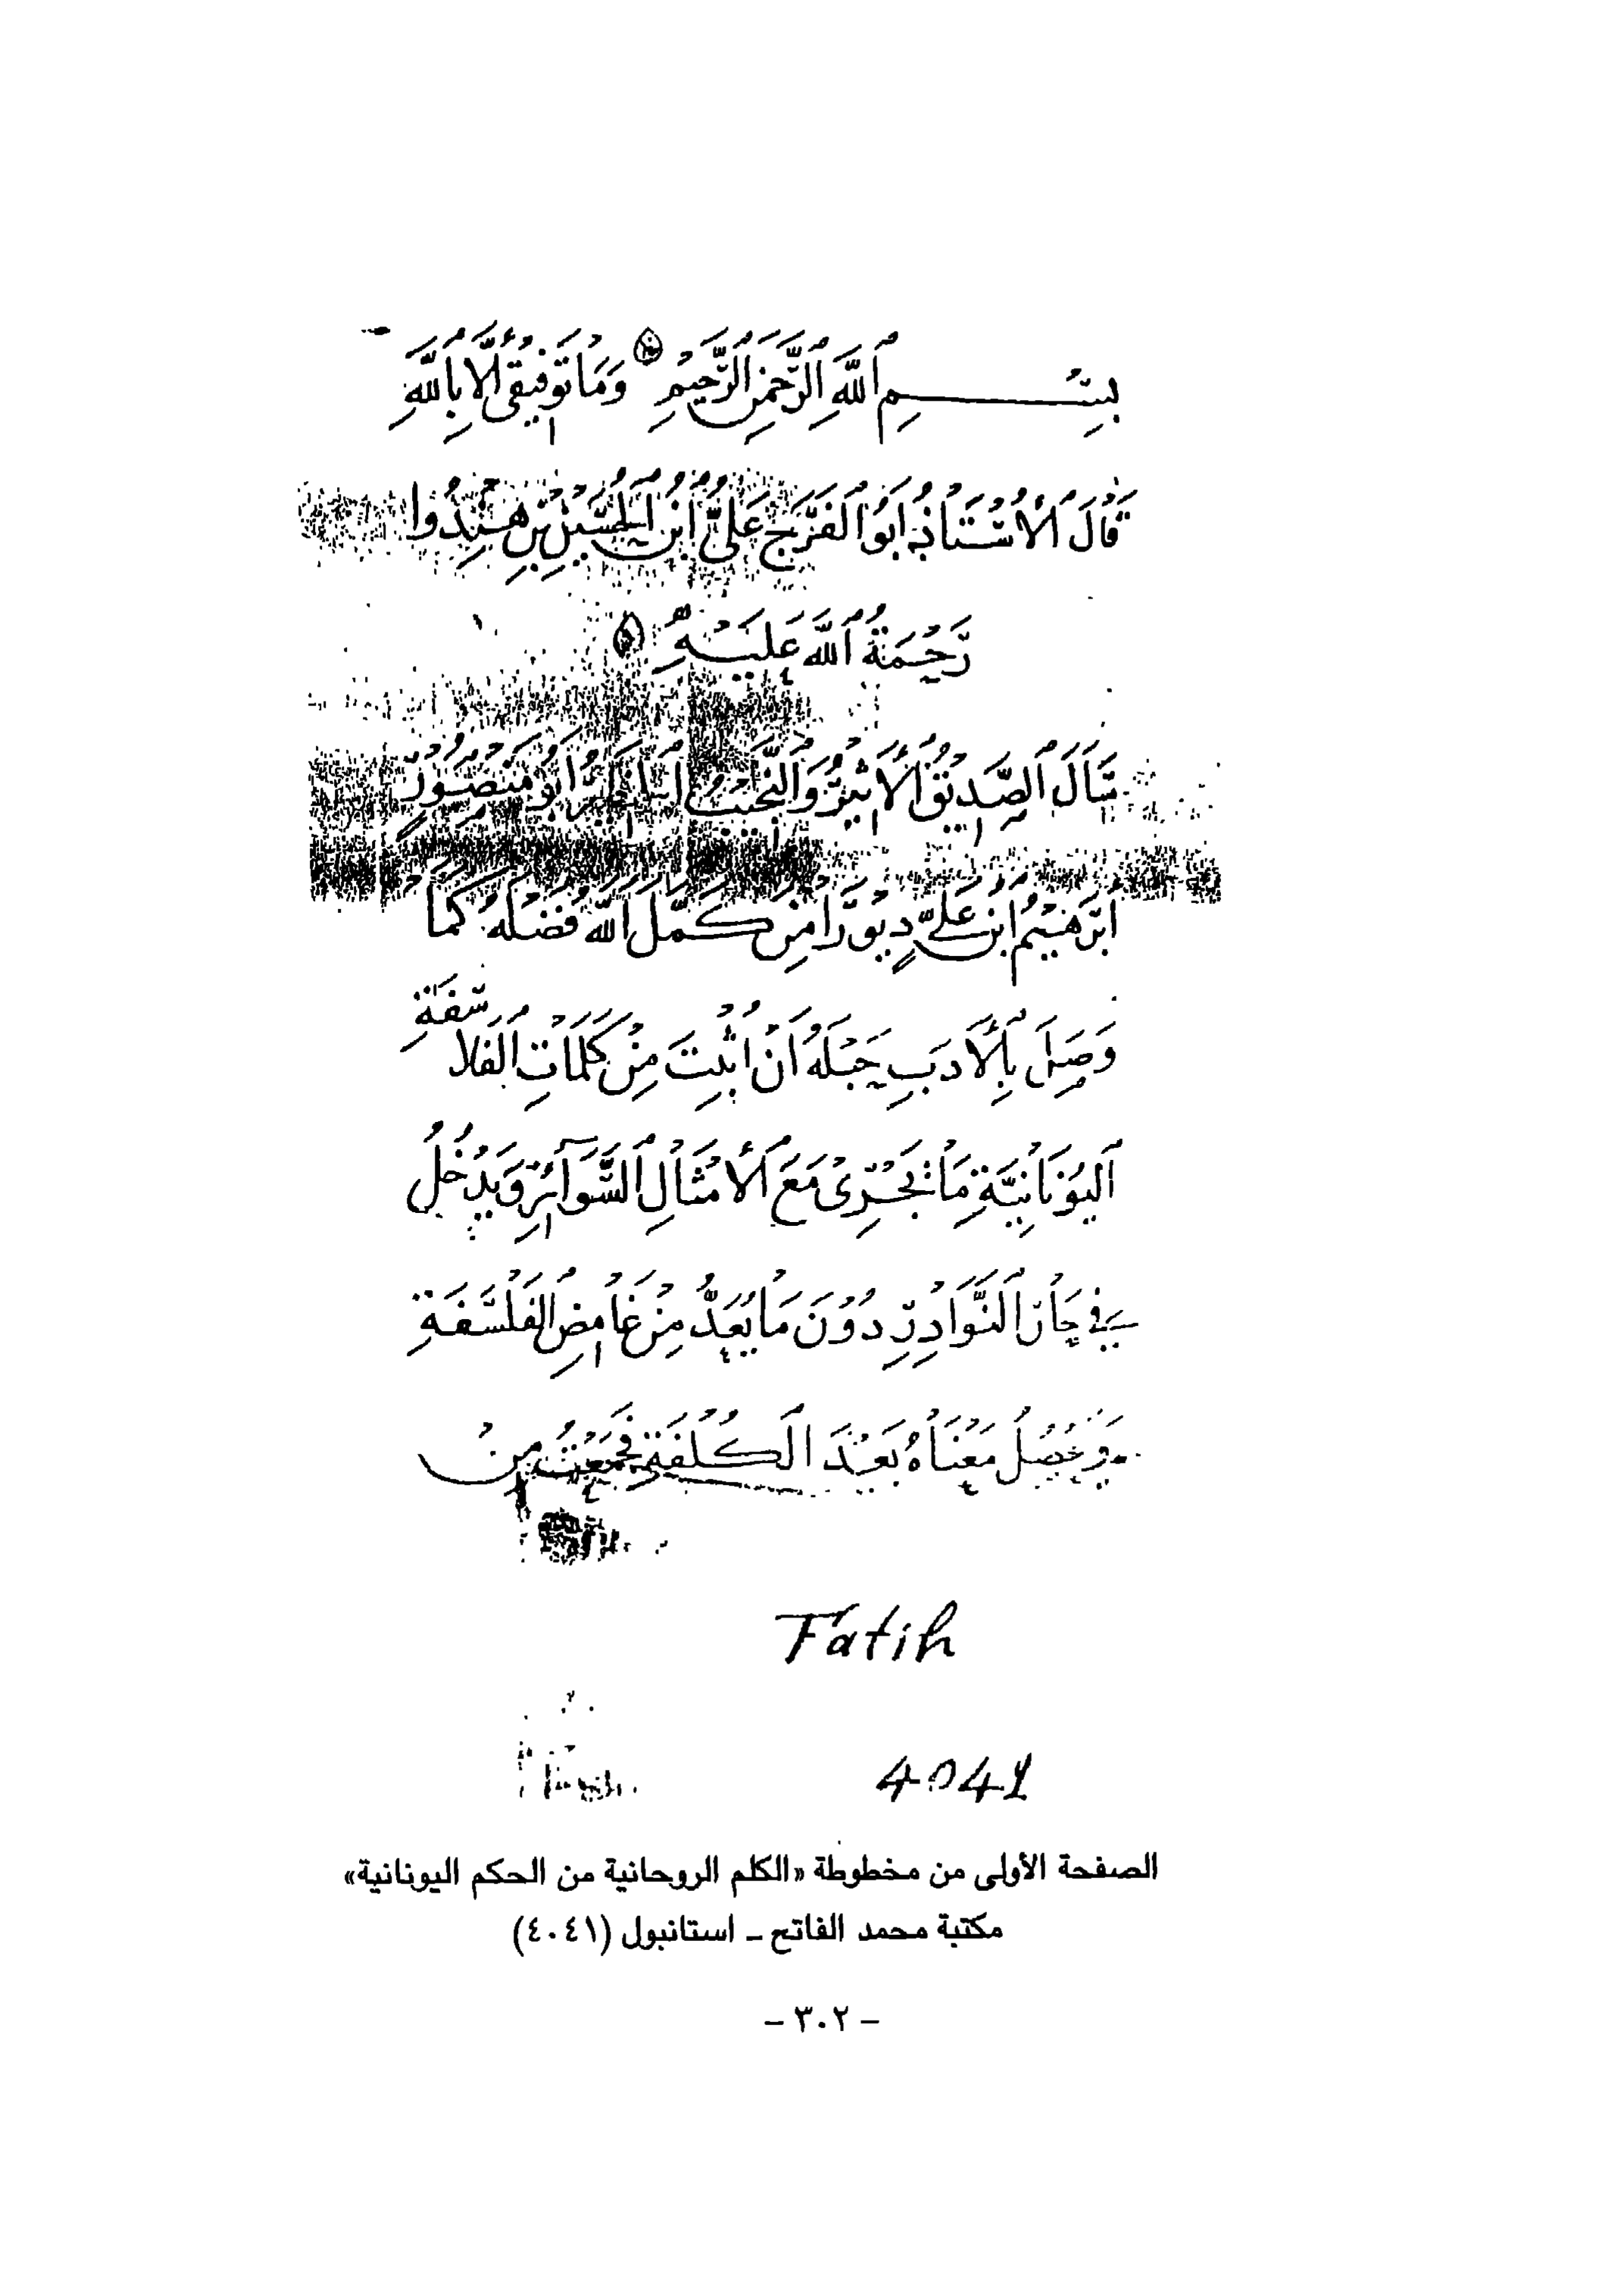 بِسْمِ ٱللَّهِ ٱلرَّحْمَنِ ٱلرَّحِيمِ وَمَا تَوْفِيقِي أَلَّا بِٱللَّهِ
قَالَ ٱلْأُسْتَاذُ أَبُو ٱلْفَرَجِ عَلِيُّ ٱبْنُ ٱلْحُسَيْنِ بْنِ هِنْدُوا
رَحْمَةُ ٱللَّهِ عَلَيْهِ
سَأَلَ ٱلصَّدِيقُ ٱلْأَثِيرُ وَٱلنَّجِيبُ أَبُو مَنْصُورٍ
ٱبْرَهِيمُ ٱبْنُ عَلِيٍّ دِيوَرَا مِنْ كَمَّلَ ٱللَّهُ فَضْلَهُ كَمَا
وَصَلَ بِٱلْأَدَبِ حَبْلَهُ أَنْ أُثْبِتَ مِنْ كَلِمَاتِ ٱلْفَلَاسَفَةِ
ٱلْيُونَانِيَّةِ مَا يَجْرِى مَعَ ٱلْأَمْثَالِ ٱلسَّوَآئِرِ وَيَدْخُلُ
فِي جَارِ ٱلنَّوَادِرِ دُونَ مَا يُعَدُّ مِنْ غَامِضِ ٱلْفَلْسَفَةِ
وَيَحْصُلُ مَعْنَاهُ بَعْدَ ٱلْكُلْفَةِ فَجَمَعْتُ مِنْ
Fatih
4041
الصفحة الأولى من مخطوطة «الكلم الروحانية من الحكم اليونانية»
مكتبة محمد الفاتح - استانبول (٤٠٤١)
- ٣٠٢ -